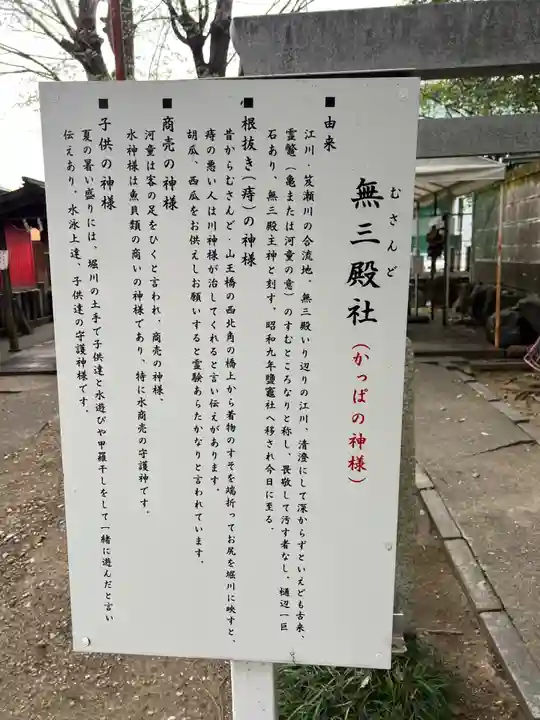 無三殿社（かっぱの神様）
むさんど
■由来
江川・笈瀬川の合流地、無三殿いり辺りの江川、清澄にして深からずといえども古来、
霊鼈（亀または河童の意）のすむところなりと称し、畏敬して汚す者なし、樋辺一巨
石あり、無三殿主神と刻す、昭和九年塩竈社へ移され今日に至る．
■根抜き（痔）の神様
昔からむさんど・山王橋の西北角の橋上から着物のすそを端折ってお尻を堀川に映すと、
痔の悪い人は川神様が治してくれると言い伝えがあります．
胡瓜、西瓜をお供えしお願いすると霊験あらたかなりと言われています．
■商売の神様
河童は客の足をひくと言われ、商売の神様．
水神様は魚貝類の商いの神様であり、特に水商売の守護神です．
■子供の神様
夏の暑い盛りには、堀川の土手で子供達と水遊びや甲羅干しをして一緒に遊んだと言い
伝えあり、水泳上達、子供達の守護神様です．